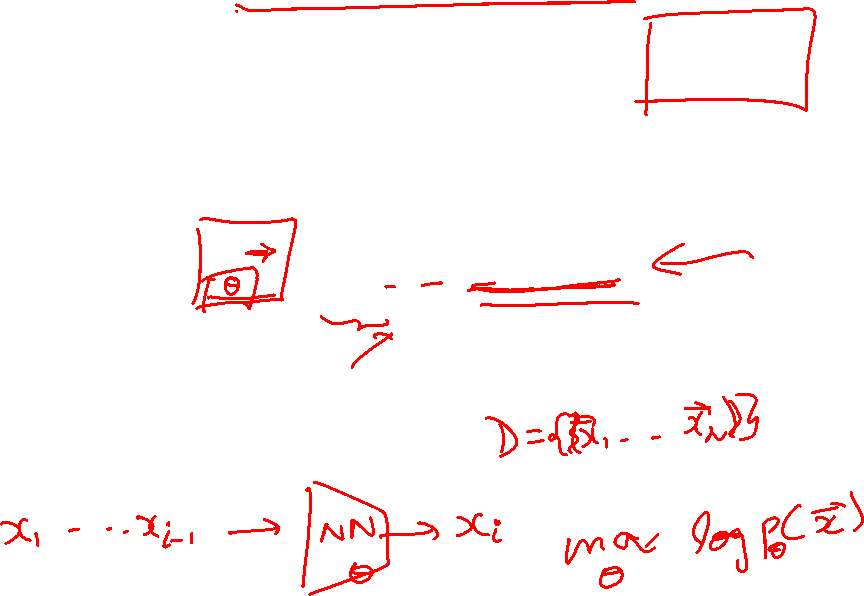 θ
D = {x⃗₁ ... x⃗ₙ}
x₁ ... xᵢ₋₁ → NN θ → xᵢ
max θ log p_θ(x⃗)